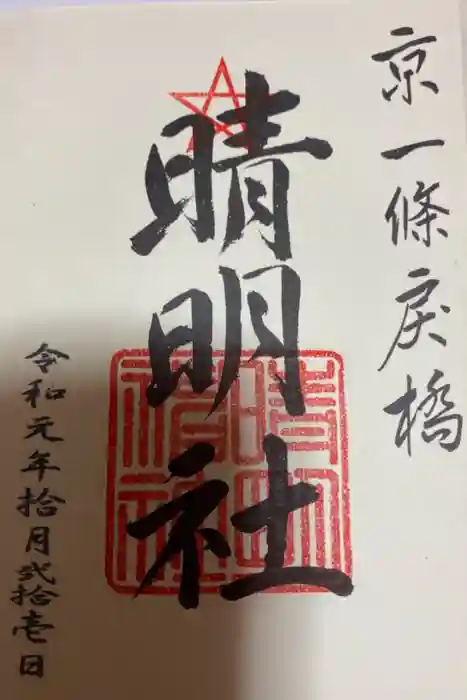 京一條戻橋
晴明社
令和元年拾月弐拾壱日